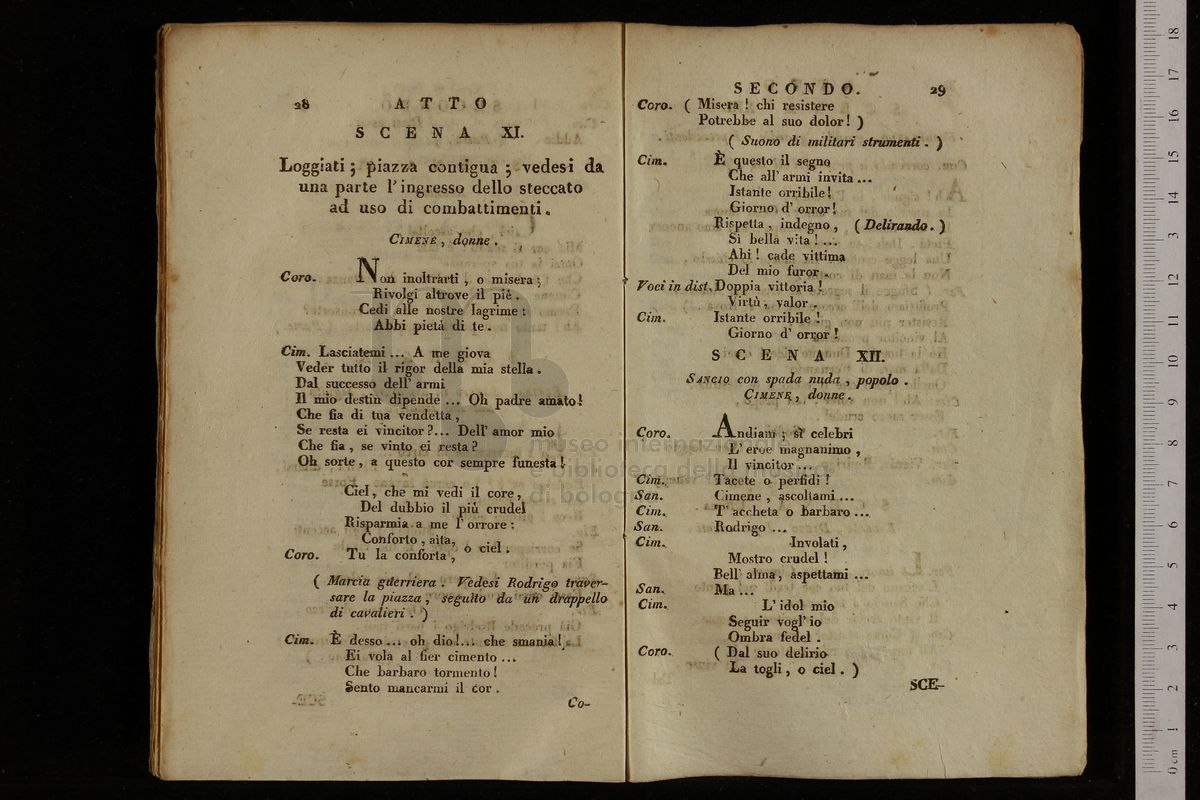 28 ATTO
SCENA XI.
Loggiati ; piazza contigua ; vedesi da
una parte l'ingresso dello steccato
ad uso di combattimenti.
CIMENE , donne .
Coro. Non inoltrarti , o misera ;
Rivolgi altrove il piè .
Cedi alle nostre lagrime :
Abbi pietà di te .
Cim. Lasciatemi ... A me giova
Veder tutto il rigor della mia stella .
Dal successo dell' armi
Il mio destin dipende ... Oh padre amato !
Che fia di tua vendetta ,
Se resta ei vincitor ?... Dell' amor mio
Che fia , se vinto ei resta ?
Oh sorte , a questo cor sempre funesta !
Ciel , che mi vedi il core ,
Del dubbio il più crudel
Risparmia a me l' orrore :
Conforto , aita,
o ciel .
Coro. Tu la conforta ,
( Marcia guerriera . Vedesi Rodrigo traver-
sare la piazza , seguito da un drappello
di cavalieri . )
Cim. È desso ... oh dio !... che smania !
Ei vola al fier cimento ...
Che barbaro tormento !
Sento mancarmi il cor .
Co-
SECONDO. 29
Coro. ( Misera ! chi resistere
Potrebbe al suo dolor ! )
( Suono di militari strumenti . )
Cim. È questo il segno
Che all' armi invita ...
Istante orribile !
Giorno d' orror !
Rispetta , indegno , ( Delirando . )
Sì bella vita ! ...
Ahi ! cade vittima
Del mio furor .
Voci in dist. Doppia vittoria !
Virtù , valor .
Cim. Istante orribile !
Giorno d' orror !
SCENA XII.
SANCIO con spada nuda , popolo .
CIMENE , donne .
Coro. Andiam ; si celebri
L' eroe magnanimo ,
Il vincitor ...
Cim. Tacete o perfidi !
San. Cimene , ascoltami ...
Cim. T' accheta o barbaro ...
San. Rodrigo ...
Cim. Involati ,
Mostro crudel !
Bell' alma , aspettami ...
San. Ma ...
Cim. L' idol mio
Seguir vogl' io
Ombra fedel .
Coro. ( Dal suo delirio
La togli , o ciel . )
SCE-
museo internazionale
e biblioteca della musica
di bologna
0 cm 1 2 3 4 5 6 7 8 9 10 11 12 13 14 15 16 17 18